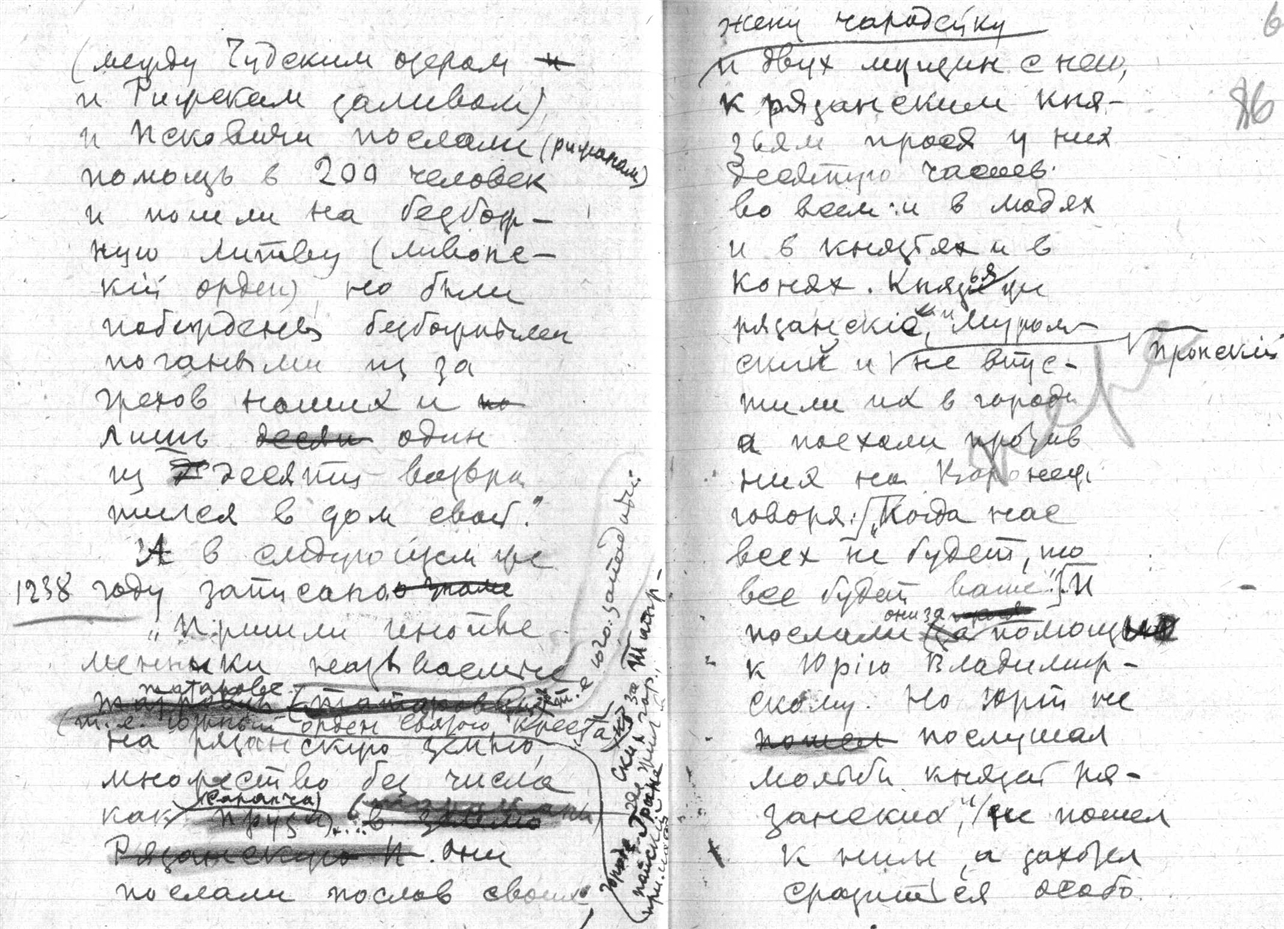 (между Чудским озером
и Рижским заливом),
и Псковичи послали (рижанам)
помощь в 200 человек
и пошли на безбож-
ную Литву (ливонс-
кій орден) но были
побеждены безбожными
погаными из за
грехов наших и
лишь один
из десяти возвра
тился в дом свой."
А в следующем же
1238 году записано
„Пришли инопле
менники называемые
татарове
(т.е. орден святого креста)
на рязанскую землю
множество без числа
как (саранча)
они
послали послов своих
жену чародейку
и двух мущин с нею,
к рязанским кня-
зьям прося у них
десятую часть
во всем: и в людях
и в князьях и в
конях. Князья же
рязанскіе, Муром-
ский и Пронскій не впус-
тили их в города
а поехали против
них на Воронеж
говоря: „Когда нас
всех не будет, то
все будет ваше". И
послали они за помощью
к Юрію Владимир-
скому. Но Юрій не
послушал
мольбы князей ря-
занских", не пошел
к ним, а захотел
сразиться особо.
6
86